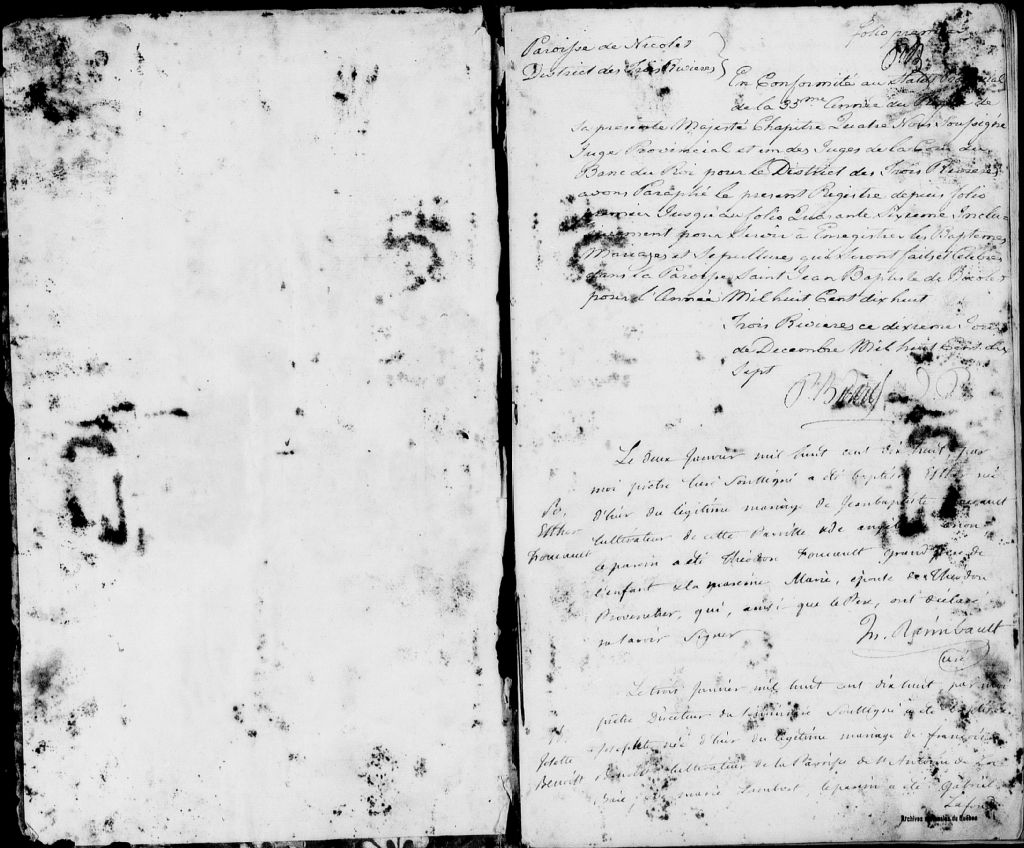 folio premier
Paroisse de Nicolet
District des Trois Rivieres
En Conformité au Statut Provincial
de la 35me Année du Regne de
Sa presente Majesté Chapitre Quatre Nous Soussigné
Juge Provincial et un des Juges de la Cour du
Banc du Roi pour le District des Trois Rivieres
avons Paraphé le present Registre depuis folio
premier Jusqu'au folio Quarante Sixieme Inclu-
sivement pour Servir à Enregistrer les Baptemes
Mariages et Sepultures qui Seront faits et Celebrés
dans la Paroisse Saint Jean Baptiste de Nicolet
pour l'Année Mil huit Cent dix huit
Trois Rivieres ce dixieme Jour
de Decembre Mil huit Cent dix
Sept
Le deux Janvier mil huit cent dix huit, par
moi prêtre Curé Soussigné a été baptisé Esther né
B.
Esther
Foucault
d'hier du legitime mariage de Jean baptiste Foucault
cultivateur de cette Paroisse & de
Le parain a été Théodon Foucault grand pere de
l'enfant & la maraine Marie, épouse de Théodon
Provencher, qui, ainsi que le Pere, ont déclaré
ne savoir Signer
Raimbault
Curé
Le trois Janvier mil huit cent dix huit, par moi
prêtre Directeur du Séminaire Soussigné a été baptisée
B.
Josette
Benoist
Josephte née d'hier du legitime mariage de françois
Benoist Cultivateur de la Paroisse de St Antoine de la
Baie, & de marie Lambert, le parain a été Gabriel
Archives nationales du Québec